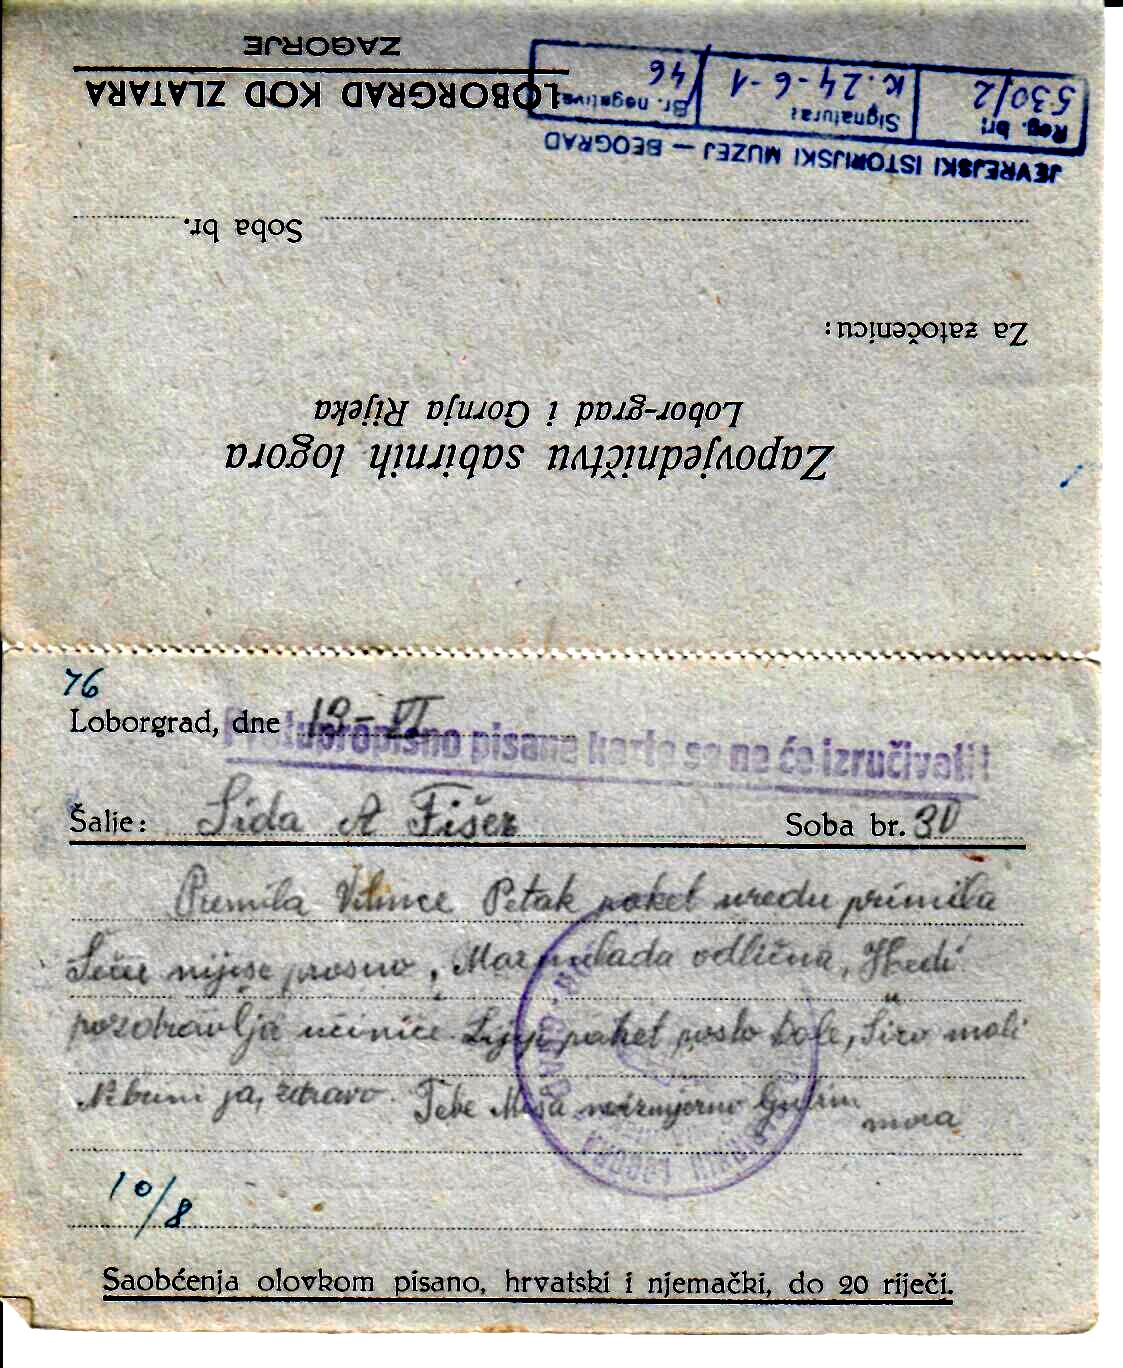 ZAGORJE
LOBORGRAD KOD ZLATARA
JEVREJSKI ISTORIJSKI MUZEJ — BEOGRAD
Reg. br: 530/2
Signatura: K. 24-6-1
Br. negativa: /46
Soba br.
Za zatočenicu:
Lobor-grad i Gornja Rijeka
Zapovjedničtvu sabirnih logora
76
Loborgrad, dne 19-VI
Protupropisno pisane karte se ne će izručivati!
Šalje: Lida A Fišer Soba br. 30
Premila Petak paket uredu primila
Šećer nijese , Marmelada odlična, Hedi
pozdravlja paket poslo Dole, Širo moli
zdravo. Tebe neizmjerno
mora
10/8
Saobćenja olovkom pisano, hrvatski i njemački, do 20 riječi.